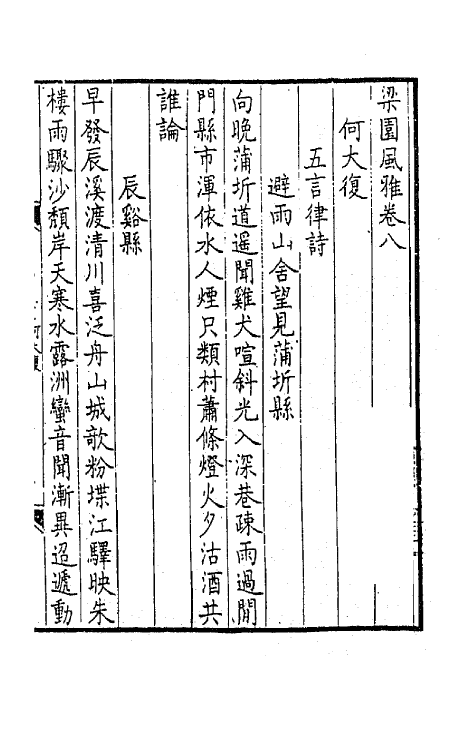 梁園風雅卷八
何大復
五言律詩
避雨山舍望見蒲圻縣
向晚蒲圻道遥聞雞犬喧斜光入深巷疎雨過閒
門縣市渾依水人煙只類村蕭條燈火夕沽酒共
誰論
辰谿縣
早發辰溪渡清川喜泛舟山城歌粉堞江驛映朱
樓雨驟沙頹岸天寒水露洲蠻音聞漸異迢遞動